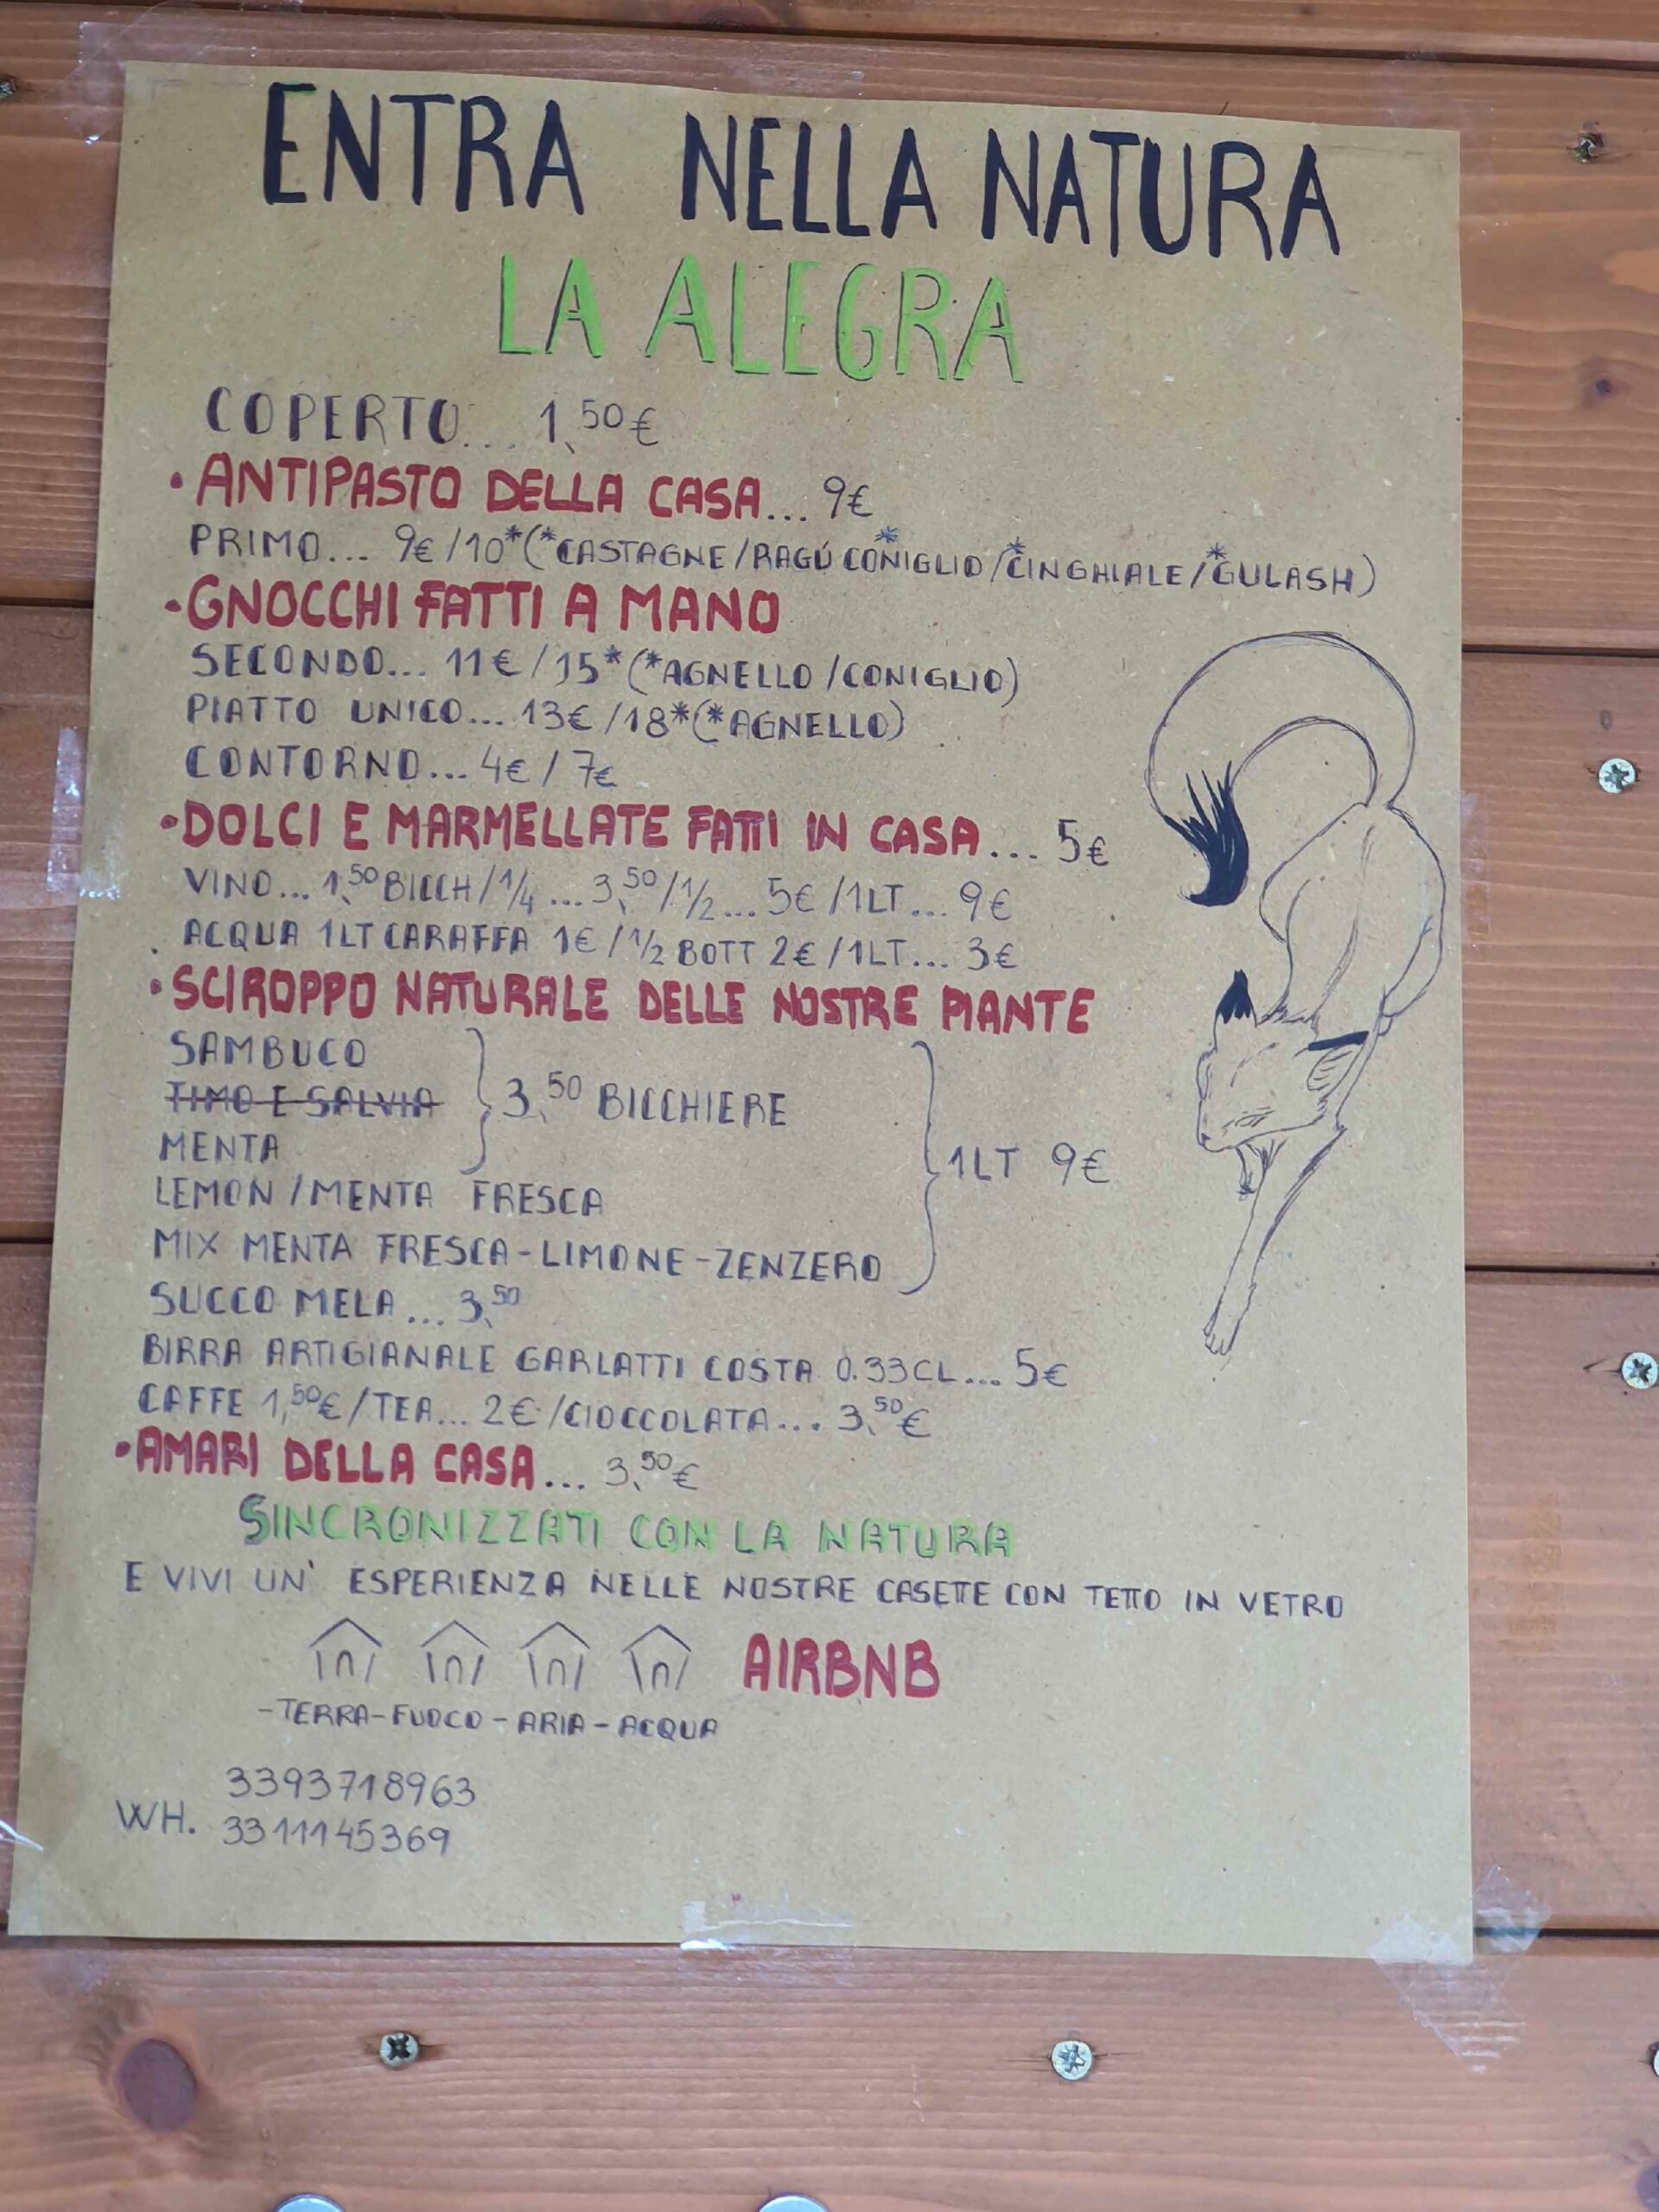 ENTRA NELLA NATURA
LA ALEGRA
COPERTO... 1,50€
• ANTIPASTO DELLA CASA... 9€
PRIMO... 9€/10*(*CASTAGNE/RAGÚ CONIGLIO*/*CINGHIALE/*GULASH)
• GNOCCHI FATTI A MANO
SECONDO... 11€/15*(*AGNELLO/CONIGLIO)
PIATTO UNICO... 13€/18*(*AGNELLO)
CONTORNO... 4€/7€
• DOLCI E MARMELLATE FATTI IN CASA... 5€
VINO... 1,50 BICCH/1/4...3,50/1/2...5€/1LT...9€
ACQUA 1LT CARAFFA 1€/1/2 BOTT 2€/1LT... 3€
• SCIROPPO NATURALE DELLE NOSTRE PIANTE
SAMBUCO
TIMO E SALVIA
3,50 BICCHIERE
MENTA
1LT 9€
LEMON/MENTA FRESCA
MIX MENTA FRESCA-LIMONE-ZENZERO
SUCCO MELA... 3,50
BIRRA ARTIGIANALE GARLATTI COSTA 0.33CL... 5€
CAFFE 1,50€/TEA... 2€/CIOCCOLATA... 3,50€
• AMARI DELLA CASA... 3,50€
SINCRONIZZATI CON LA NATURA
E VIVI UN' ESPERIENZA NELLE NOSTRE CASETTE CON TETTO IN VETRO
AIRBNB
-TERRA-FUOCO-ARIA-ACQUA
3393718963
WH. 3311145369